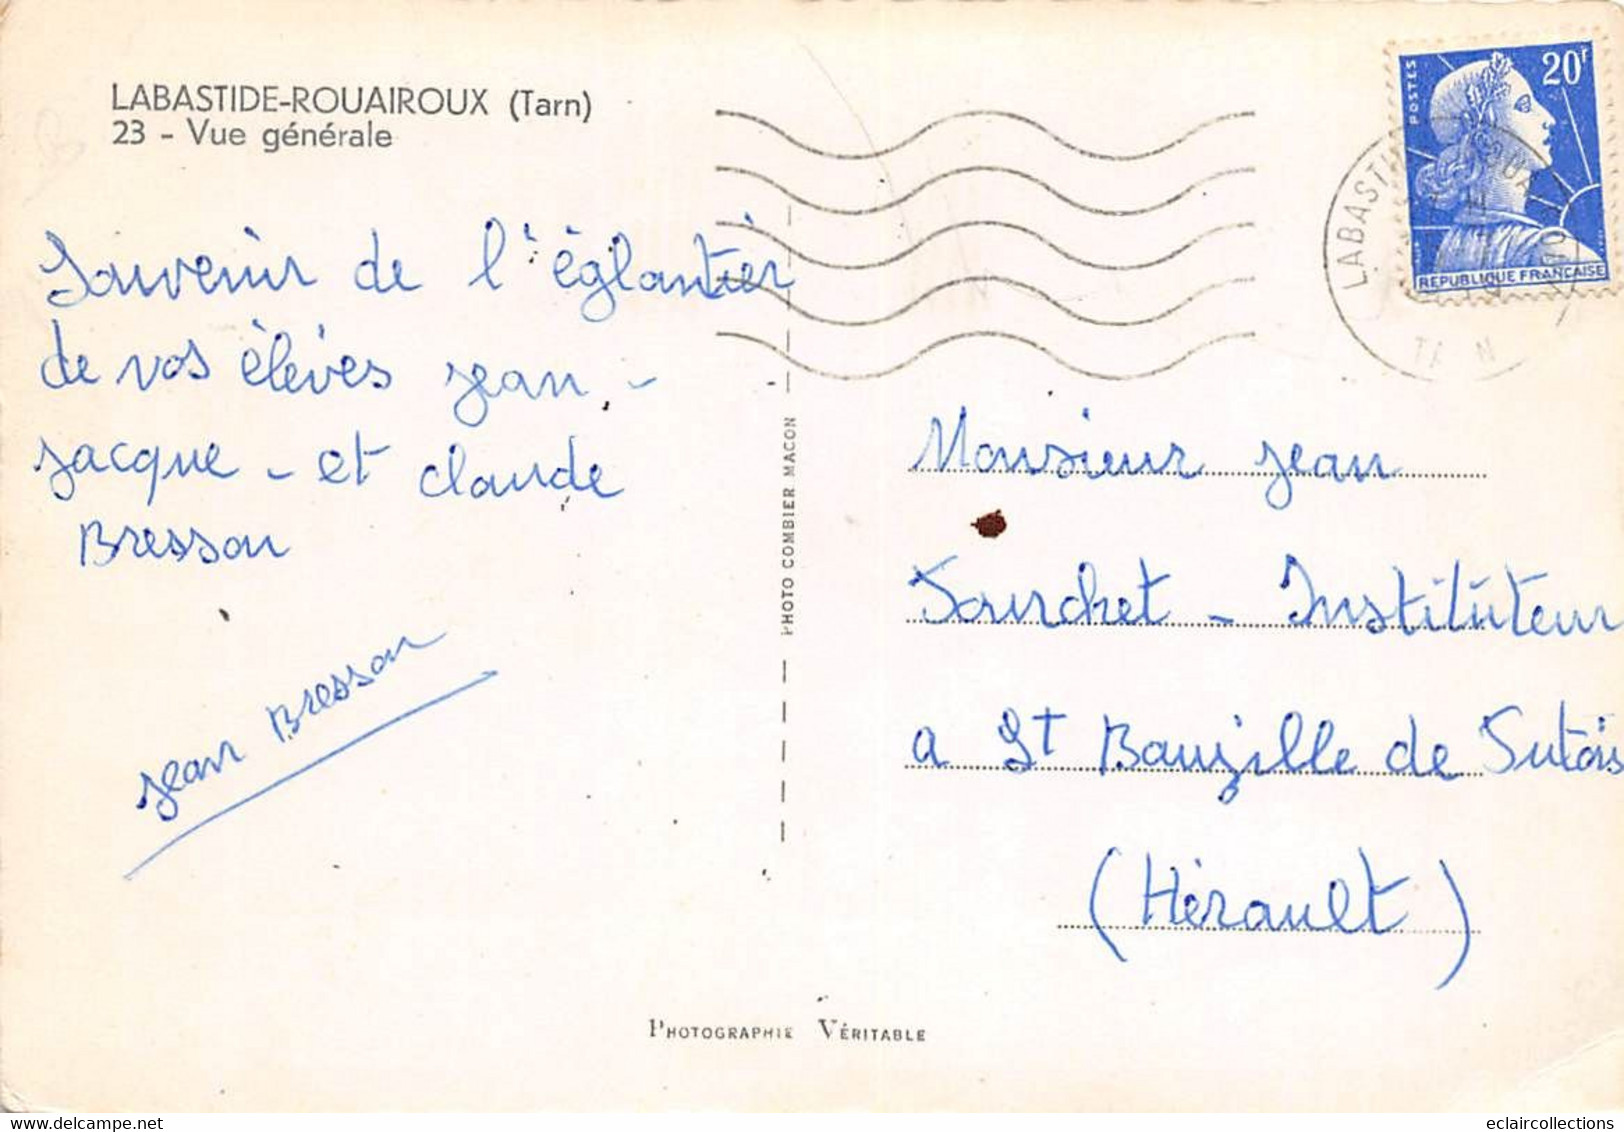 LABASTIDE-ROUAIROUX (Tarn)
23 - Vue générale
Souvenir de l'églantier
de vos élèves jean -
jacque - et claude
Bresson
jean Bresson
PHOTO COMBIER MACON
POSTES
20F
REPUBLIQUE FRANÇAISE
LABASTI
Monsieur jean
Sourchet - Instituteur
a St Bauzille de
(Hérault)
PHOTOGRAPHIE VÉRITABLE
eclaircollections